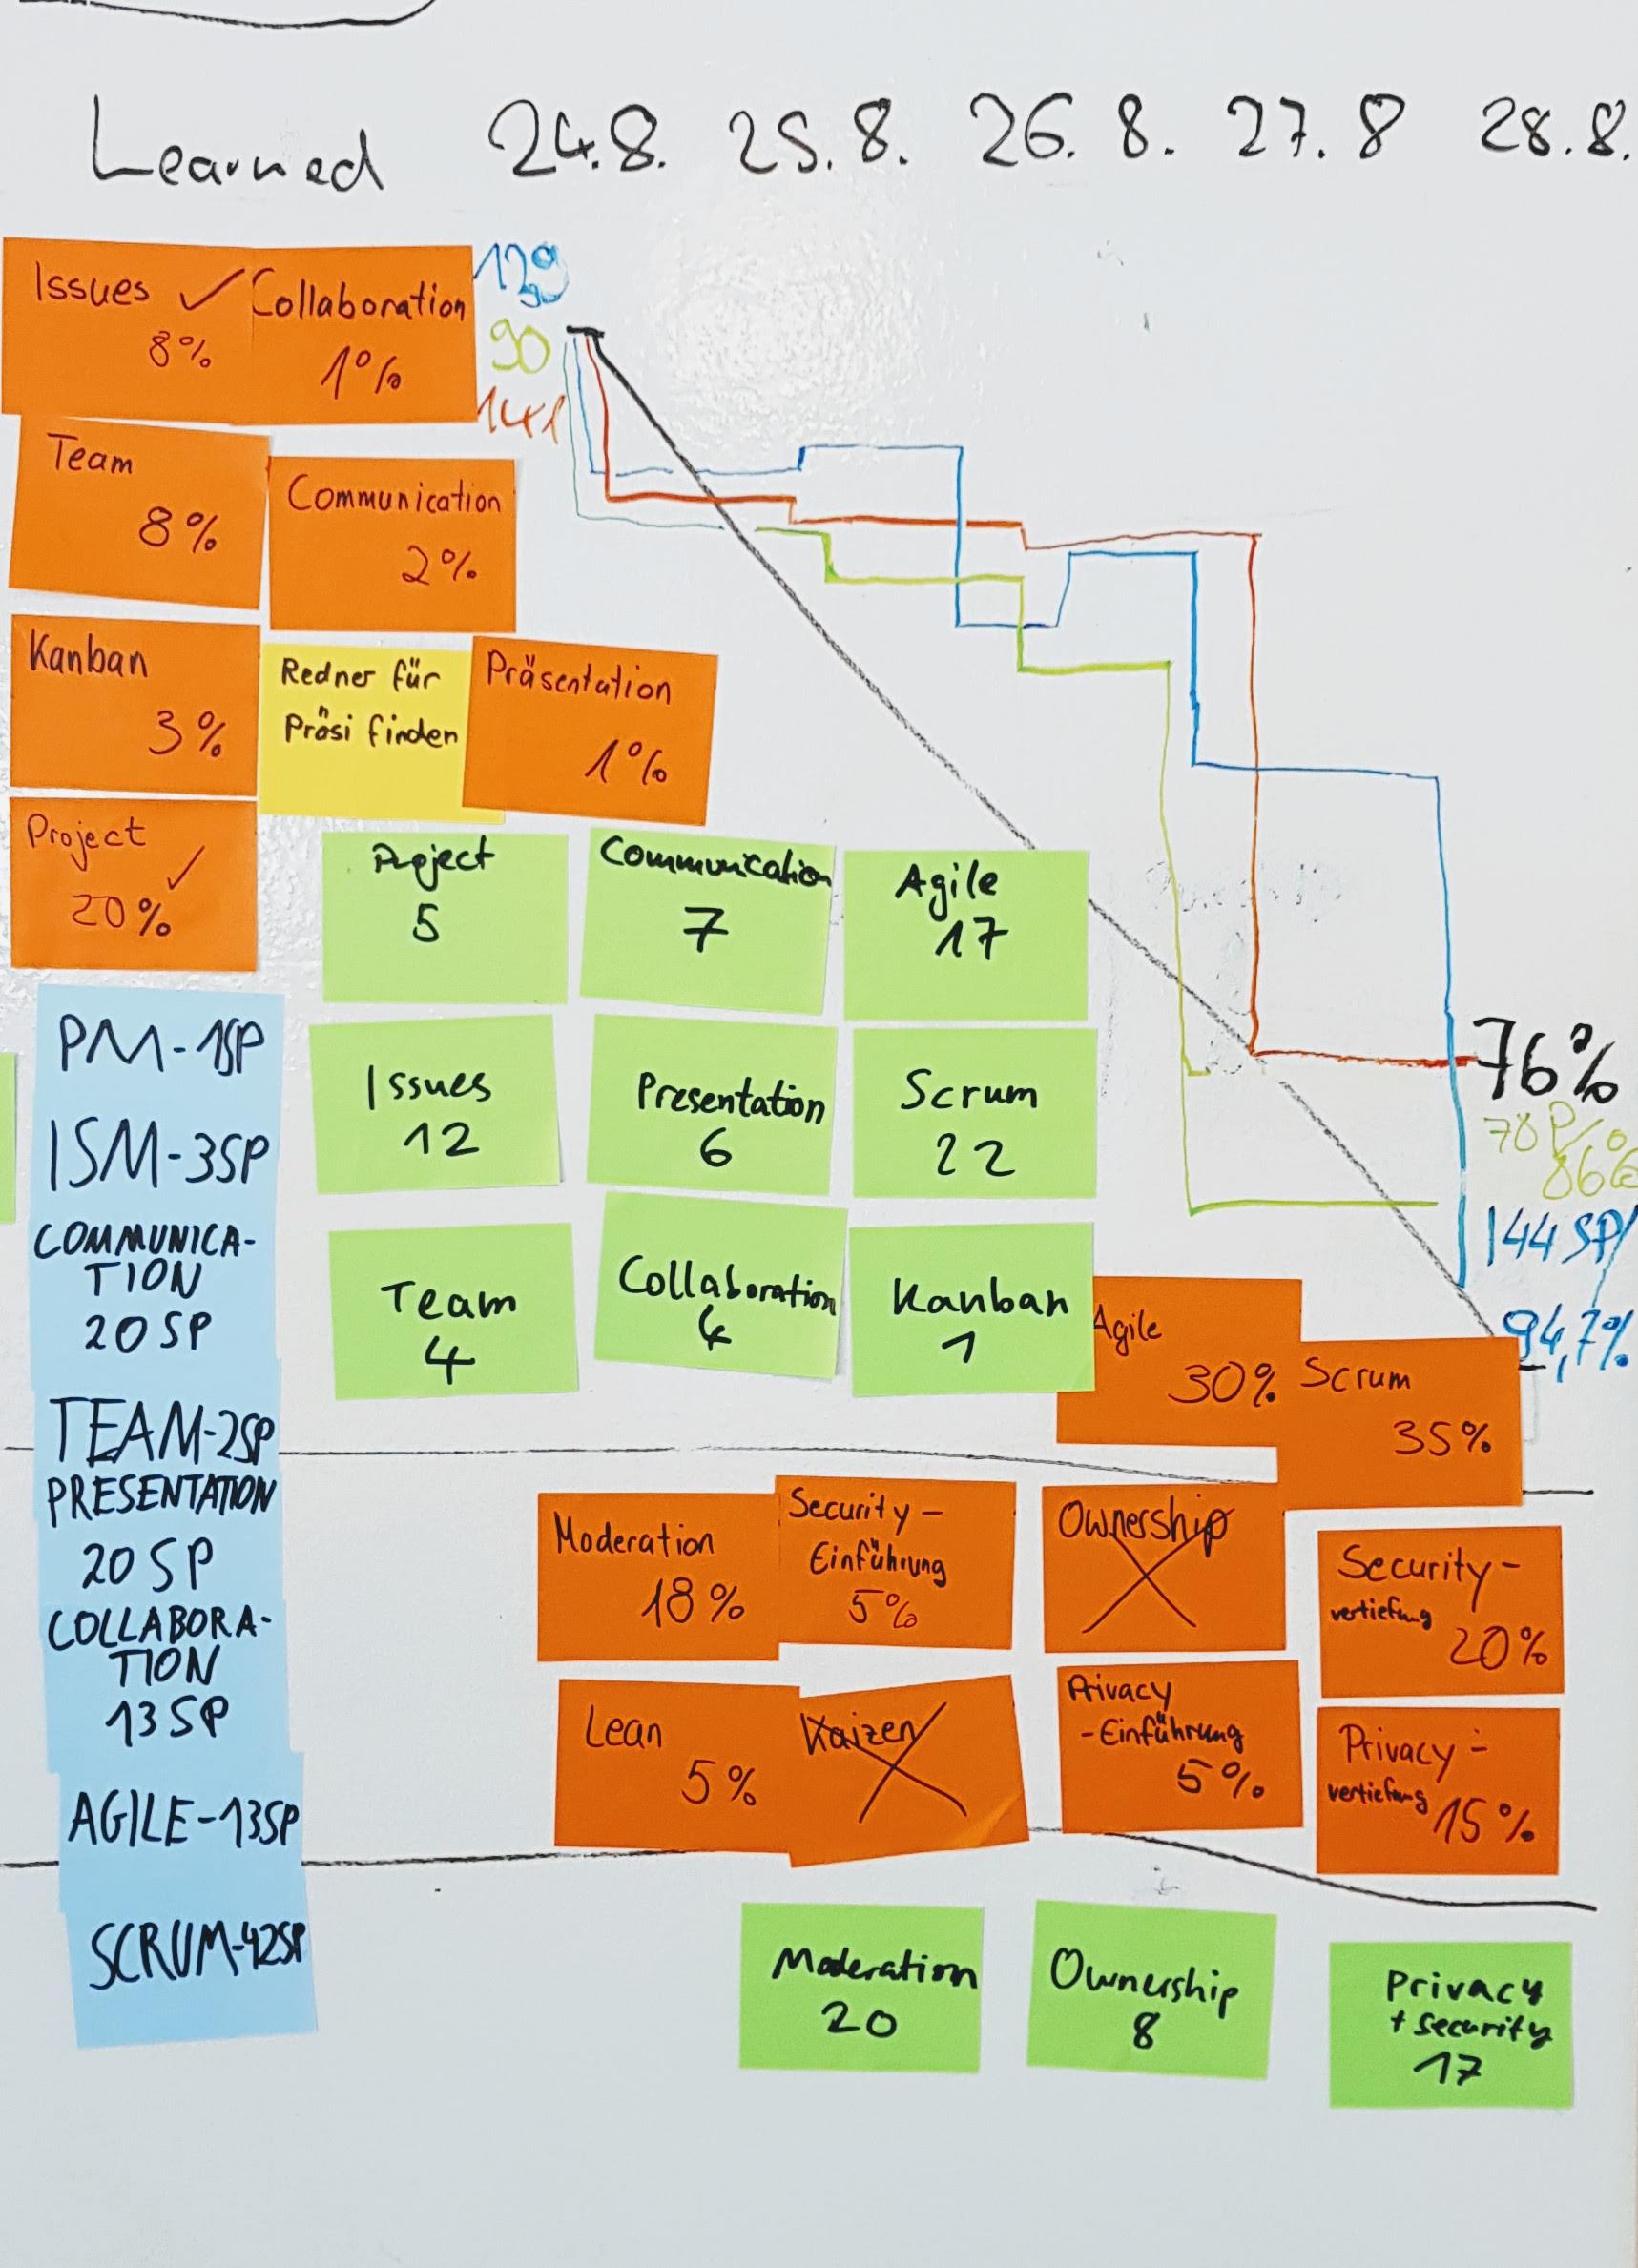 Learned 24.8. 25.8. 26.8. 27.8 28.8.
129
90
141
Issues ✓
8%
Collaboration
1%
Team
8%
Communication
2%
Kanban
3%
Redner für
Präsi finden
Präsentation
1%
Project ✓
20%
Project
5
Communication
7
Agile
17
Issues
12
Presentation
6
Scrum
22
Team
4
Collaboration
4
Kanban
1
PM-1SP
ISM-3SP
COMMUNICA-
TION
20 SP
TEAM-2SP
PRESENTATION
20 SP
COLLABORA-
TION
13 SP
AGILE-13SP
SCRUM-42SP
76%
78P/
86%
144 SP/
94,7%
Agile
30%
Scrum
35%
Moderation
18%
Security-
Einführung
5%
Ownership
Security-
vertiefung
20%
Lean
5%
Kaizen
Privacy
-Einführung
5%
Privacy-
vertiefung
15%
Moderation
20
Ownership
8
Privacy
+ security
17